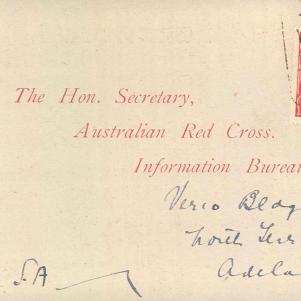 The Hon. Secretary,
Australian Red Cross.
Information Burea
Verco Bldg
North Terr
Adela
S.A